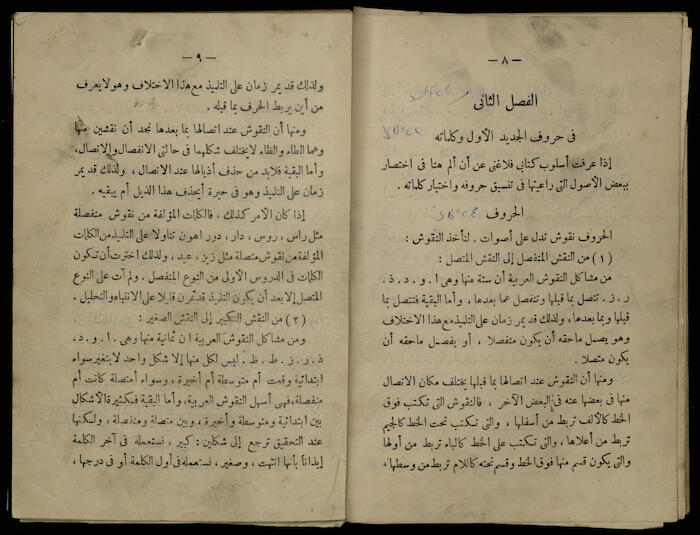 — ٨ —
الفصل الثانى
فى حروف الجديد الأول وكلماته
إذا عرفت أسلوب كتابى فلا غنى عن أن ألم هنا فى اختصار
ببعض الأصول التى راعيتها فى تنسيق حروفه واختيار كلماته .
الحروف
الحروف نقوش تدل على أصوات . لنأخذ النقوش :
(١) من النقش المنفصل إلى النقش المتصل :
من مشاكل النقوش العربية أن ستة منها وهى ا . و . د . ذ .
ر . ز . تتصل بما قبلها وتنفصل عما بعدها ، وأما البقية فتتصل بما
قبلها وبما بعدها ، ولذلك قد يمر زمان على التلميذ مع هذا الاختلاف
وهو يصل ماحقه أن يكون منفصلا ، أو يفصل ماحقه أن
يكون متصلا .
ومنها أن النقوش عند اتصالها بما قبلها يختلف مكان الاتصال
منها فى بعضها عنه فى البعض الآخر ، فالنقوش التى تكتب فوق
الخط كالألف تربط من أسفلها ، والتى تكتب تحت الخط كالجيم
تربط من أعلاها ، والتى تكتب على الخط كالباء تربط من أولها
والتى يكون قسم منها فوق الخط وقسم تحته كاللام تربط من وسطها ،
— ٩ —
ولذلك قد يمر زمان على التلميذ مع هذا الاختلاف وهو لا يعرف
من أين يربط الحرف بما قبله .
ومنها أن النقوش عند اتصالها بما بعدها نجد أن نقشين منها
وهما الطاء والظاء لا يختلف شكلهما فى حالتى الانفصال والاتصال،
وأما البقية فلابد من حذف أذيالها عند الاتصال ، ولذلك قد يمر
زمان على التلميذ وهو فى حيرة أيحذف هذا الذيل أم يبقيه .
إذا كان الأمر كذلك ، فالكلمات المؤلفة من نقوش منفصلة
مثل راس ، روس ، دار ، دور اهون تناولا على التلميذ من الكلمات
المؤلفة من نقوش متصلة مثل زيز ، عيد ، ولذلك اخترت أن تكون
الكلمات فى الدروس الأولى من النوع المنفصل . ولم آت على النوع
المتصل إلا بعد أن يكون التلميذ قد تمرن قليلا على الانتباه والتحليل .
(٢) من النقش الكبير إلى النقش الصغير :
ومن مشاكل النقوش العربية ان ثمانية منها وهى ا . و . د .
ذ . ر . ز . ط . ظ . ليس لكل منها إلا شكل واحد لا يتغير سواء
ابتدائية وقعت أم متوسطة أم أخيرة ، وسواء أمتصلة كانت أم
منفصلة، فهى أسهل النقوش العربية، وأما البقية فمكثيرة الأشكال
بين ابتدائية ومتوسطة وأخيرة ، وبين متصلة ومنفصلة ، ولكنها
عند التحقيق ترجع إلى شكلين : كبير ، نستعمله فى آخر الكلمة
إيذاناً بأنها انتهت ، وصغير ، نستعمله فى أول الكلمة أو فى درجها ،